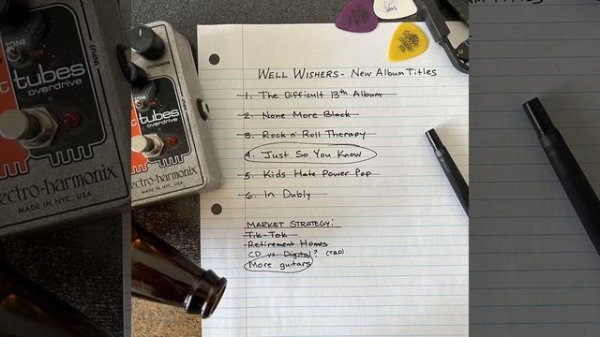 Well Wishers - New Album Titles
1. The Difficult 13th Album
2. None More Black
3. Rock n' Roll Therapy
4. Just So You Know
5. Kids Hate Power Pop
6. In Dubly
Market Strategy:
Tik-Tok
Retirement Homes
CD vs. Digital? (TBD)
More guitars
INPUT
t tubes
overdrive
ectro-harmonix
MADE IN NYC, USA
t tubes
overdrive
electro-harmonix
MADE IN NYC, USA
um Titles